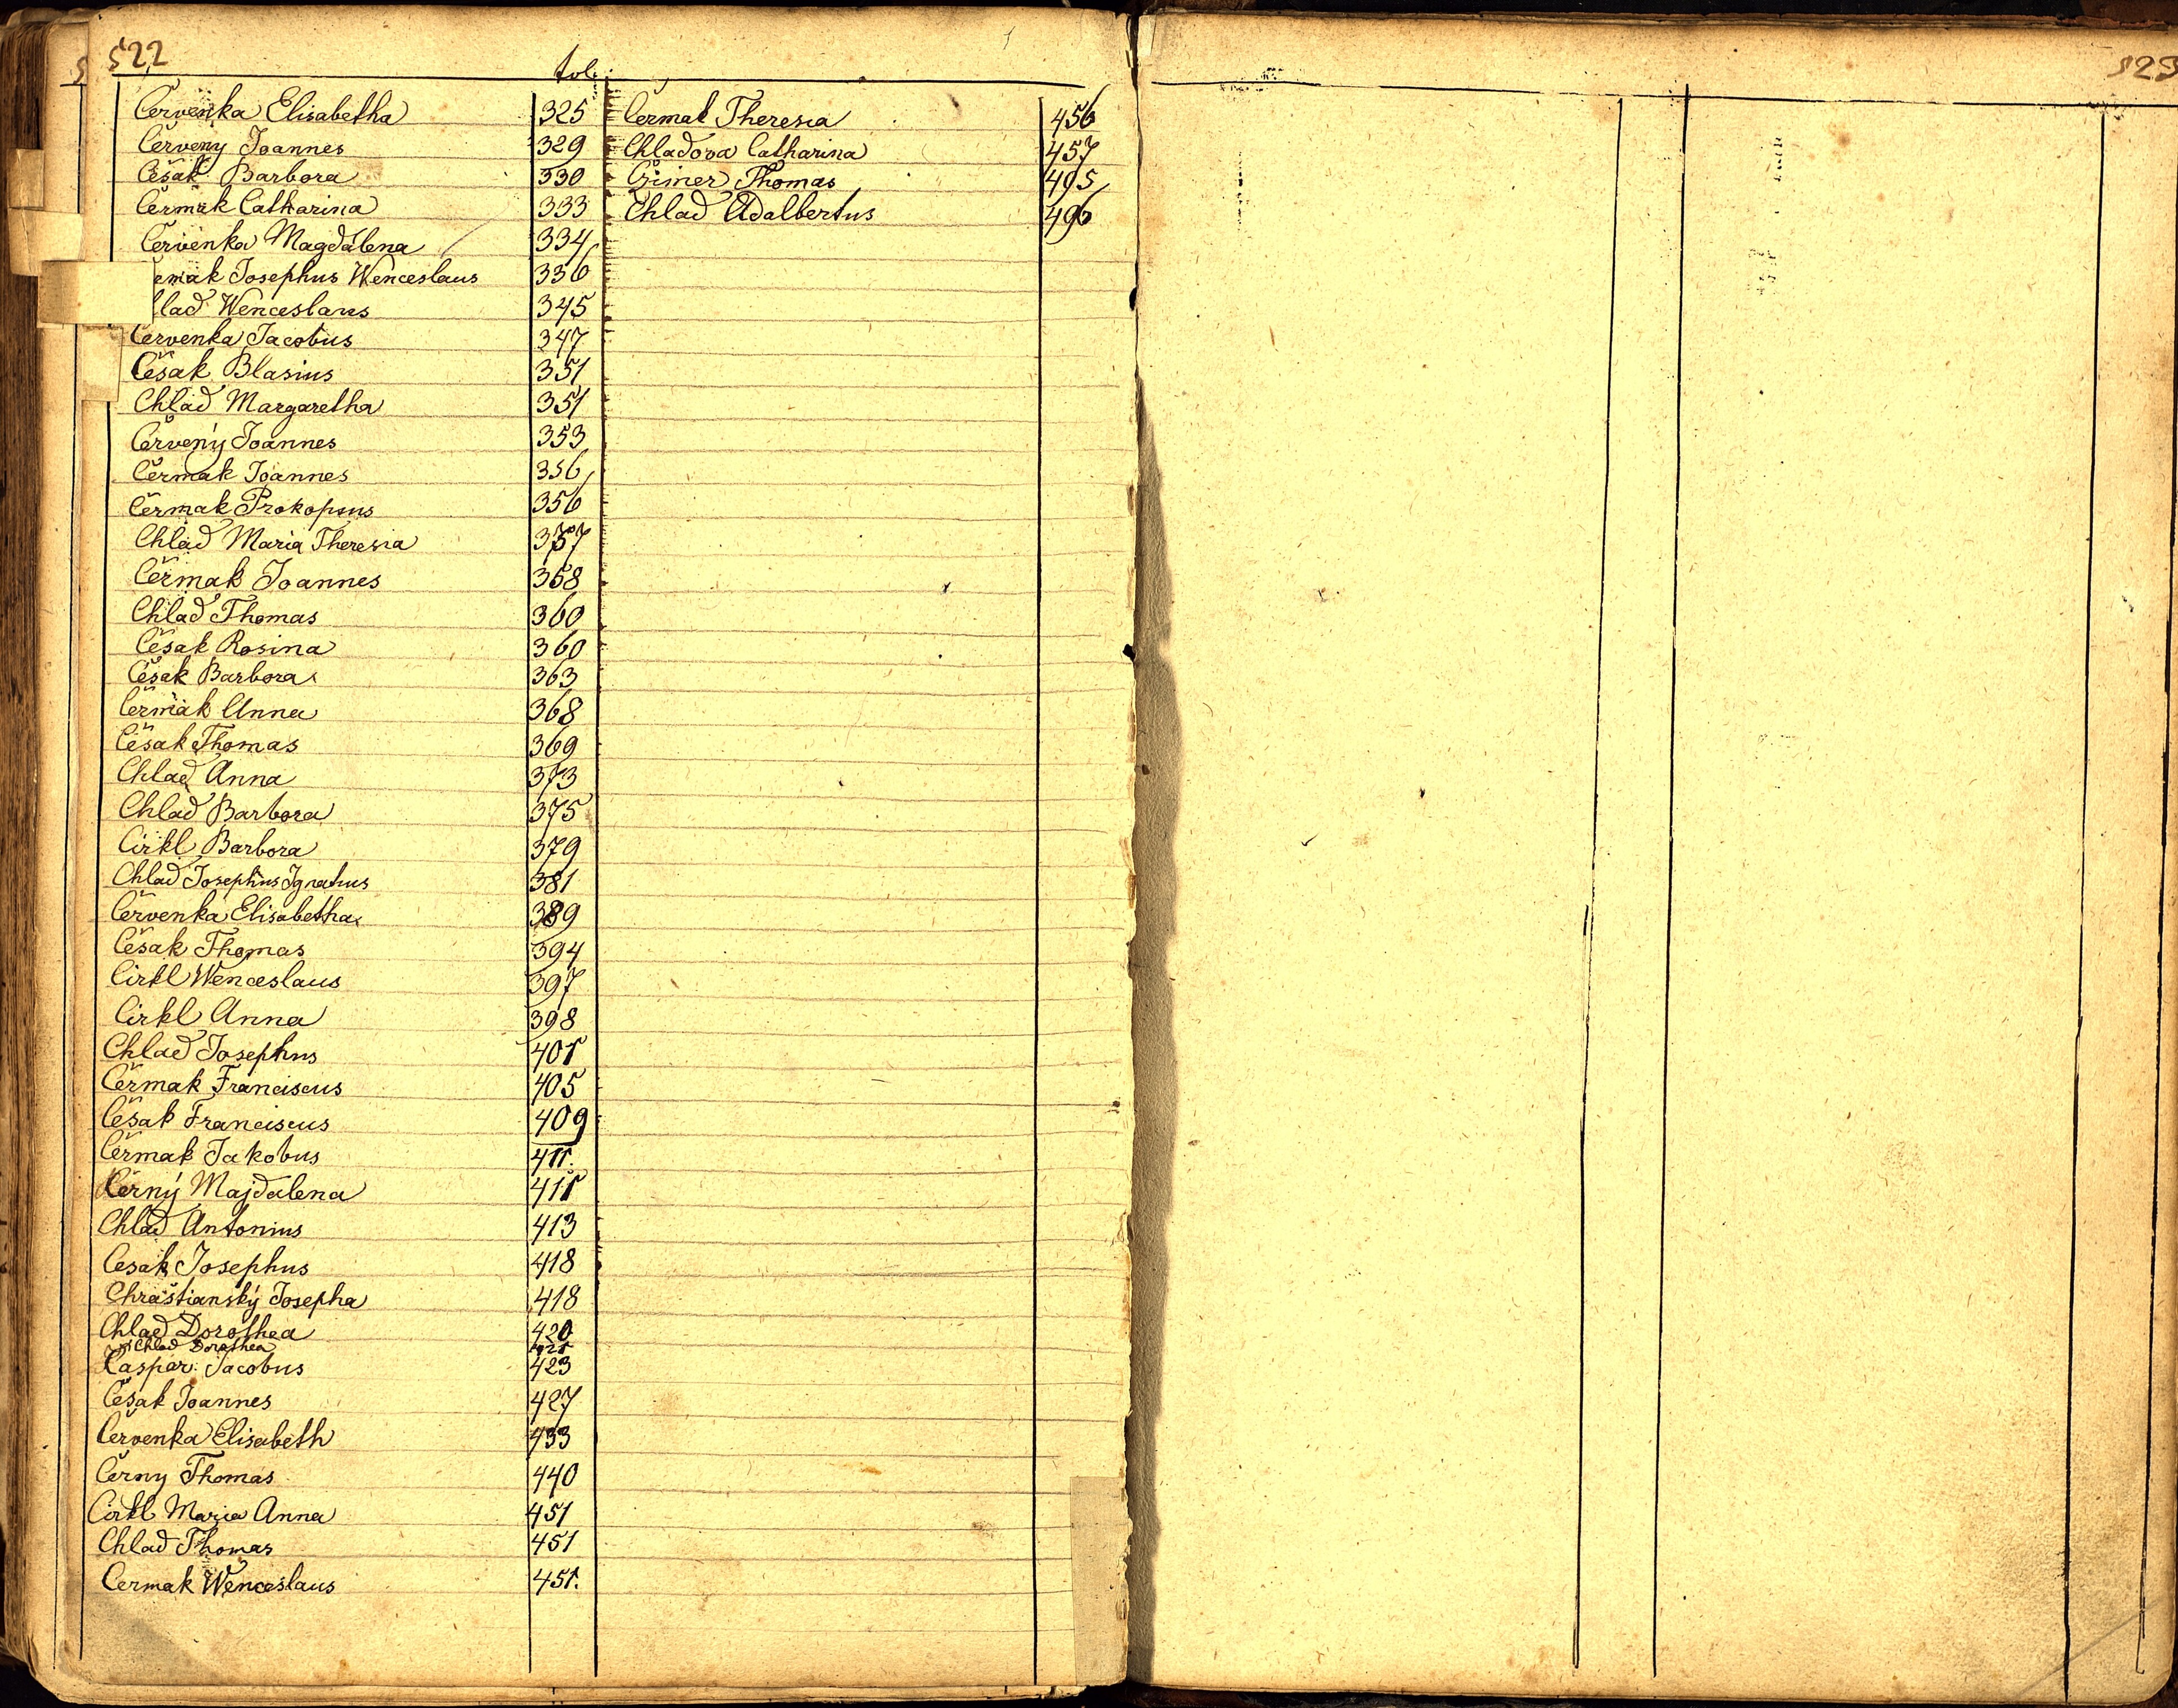 522
fol:
Červenka Elisabetha 325
Červeny Joannes 329
Češak Barbora 330
Čermak Catharina 333
Červenka Magdalena 334
emak Josephus Wenceslaus 336
lad Wenceslaus 345
Červenka Jacobus 347
Češak Blasius 351
Chlad Margaretha 351
Červený Joannes 353
Čermak Joannes 356
Čermak Prokopius 356
Chlad Maria Theresia 357
Čermak Joannes 358
Chlad Thomas 360
Češak Rosina 360
Češak Barbora 363
Čermak Anna 368
Češak Thomas 369
Chlad Anna 373
Chlad Barbora 375
Cirkl Barbora 379
Chlad Josephus Ignatius 381
Červenka Elisabetha 389
Češak Thomas 394
Cirkl Wenceslaus 397
Cirkl Anna 398
Chlad Josephus 401
Čermak Franciscus 405
Češak Franciscus 409
Čermak Jakobus 411.
Černý Majdalena 411
Chlad Antonius 413
Cesak Josephus 418
Chrastianský Josepha 418
Chlad Dorothea 420
Chlad Dorothea 421
Časpar Jacobus 423
Češak Joannes 427
Červenka Elisabeth 433
Černy Thomas 440
Cirkl Maria Anna 451
Chlad Thomas 451
Cermak Wenceslaus 451.
Čermak Theresia 456
Chladova Catharina 457
Thomas 495
Chlad Adalbertus 496
523